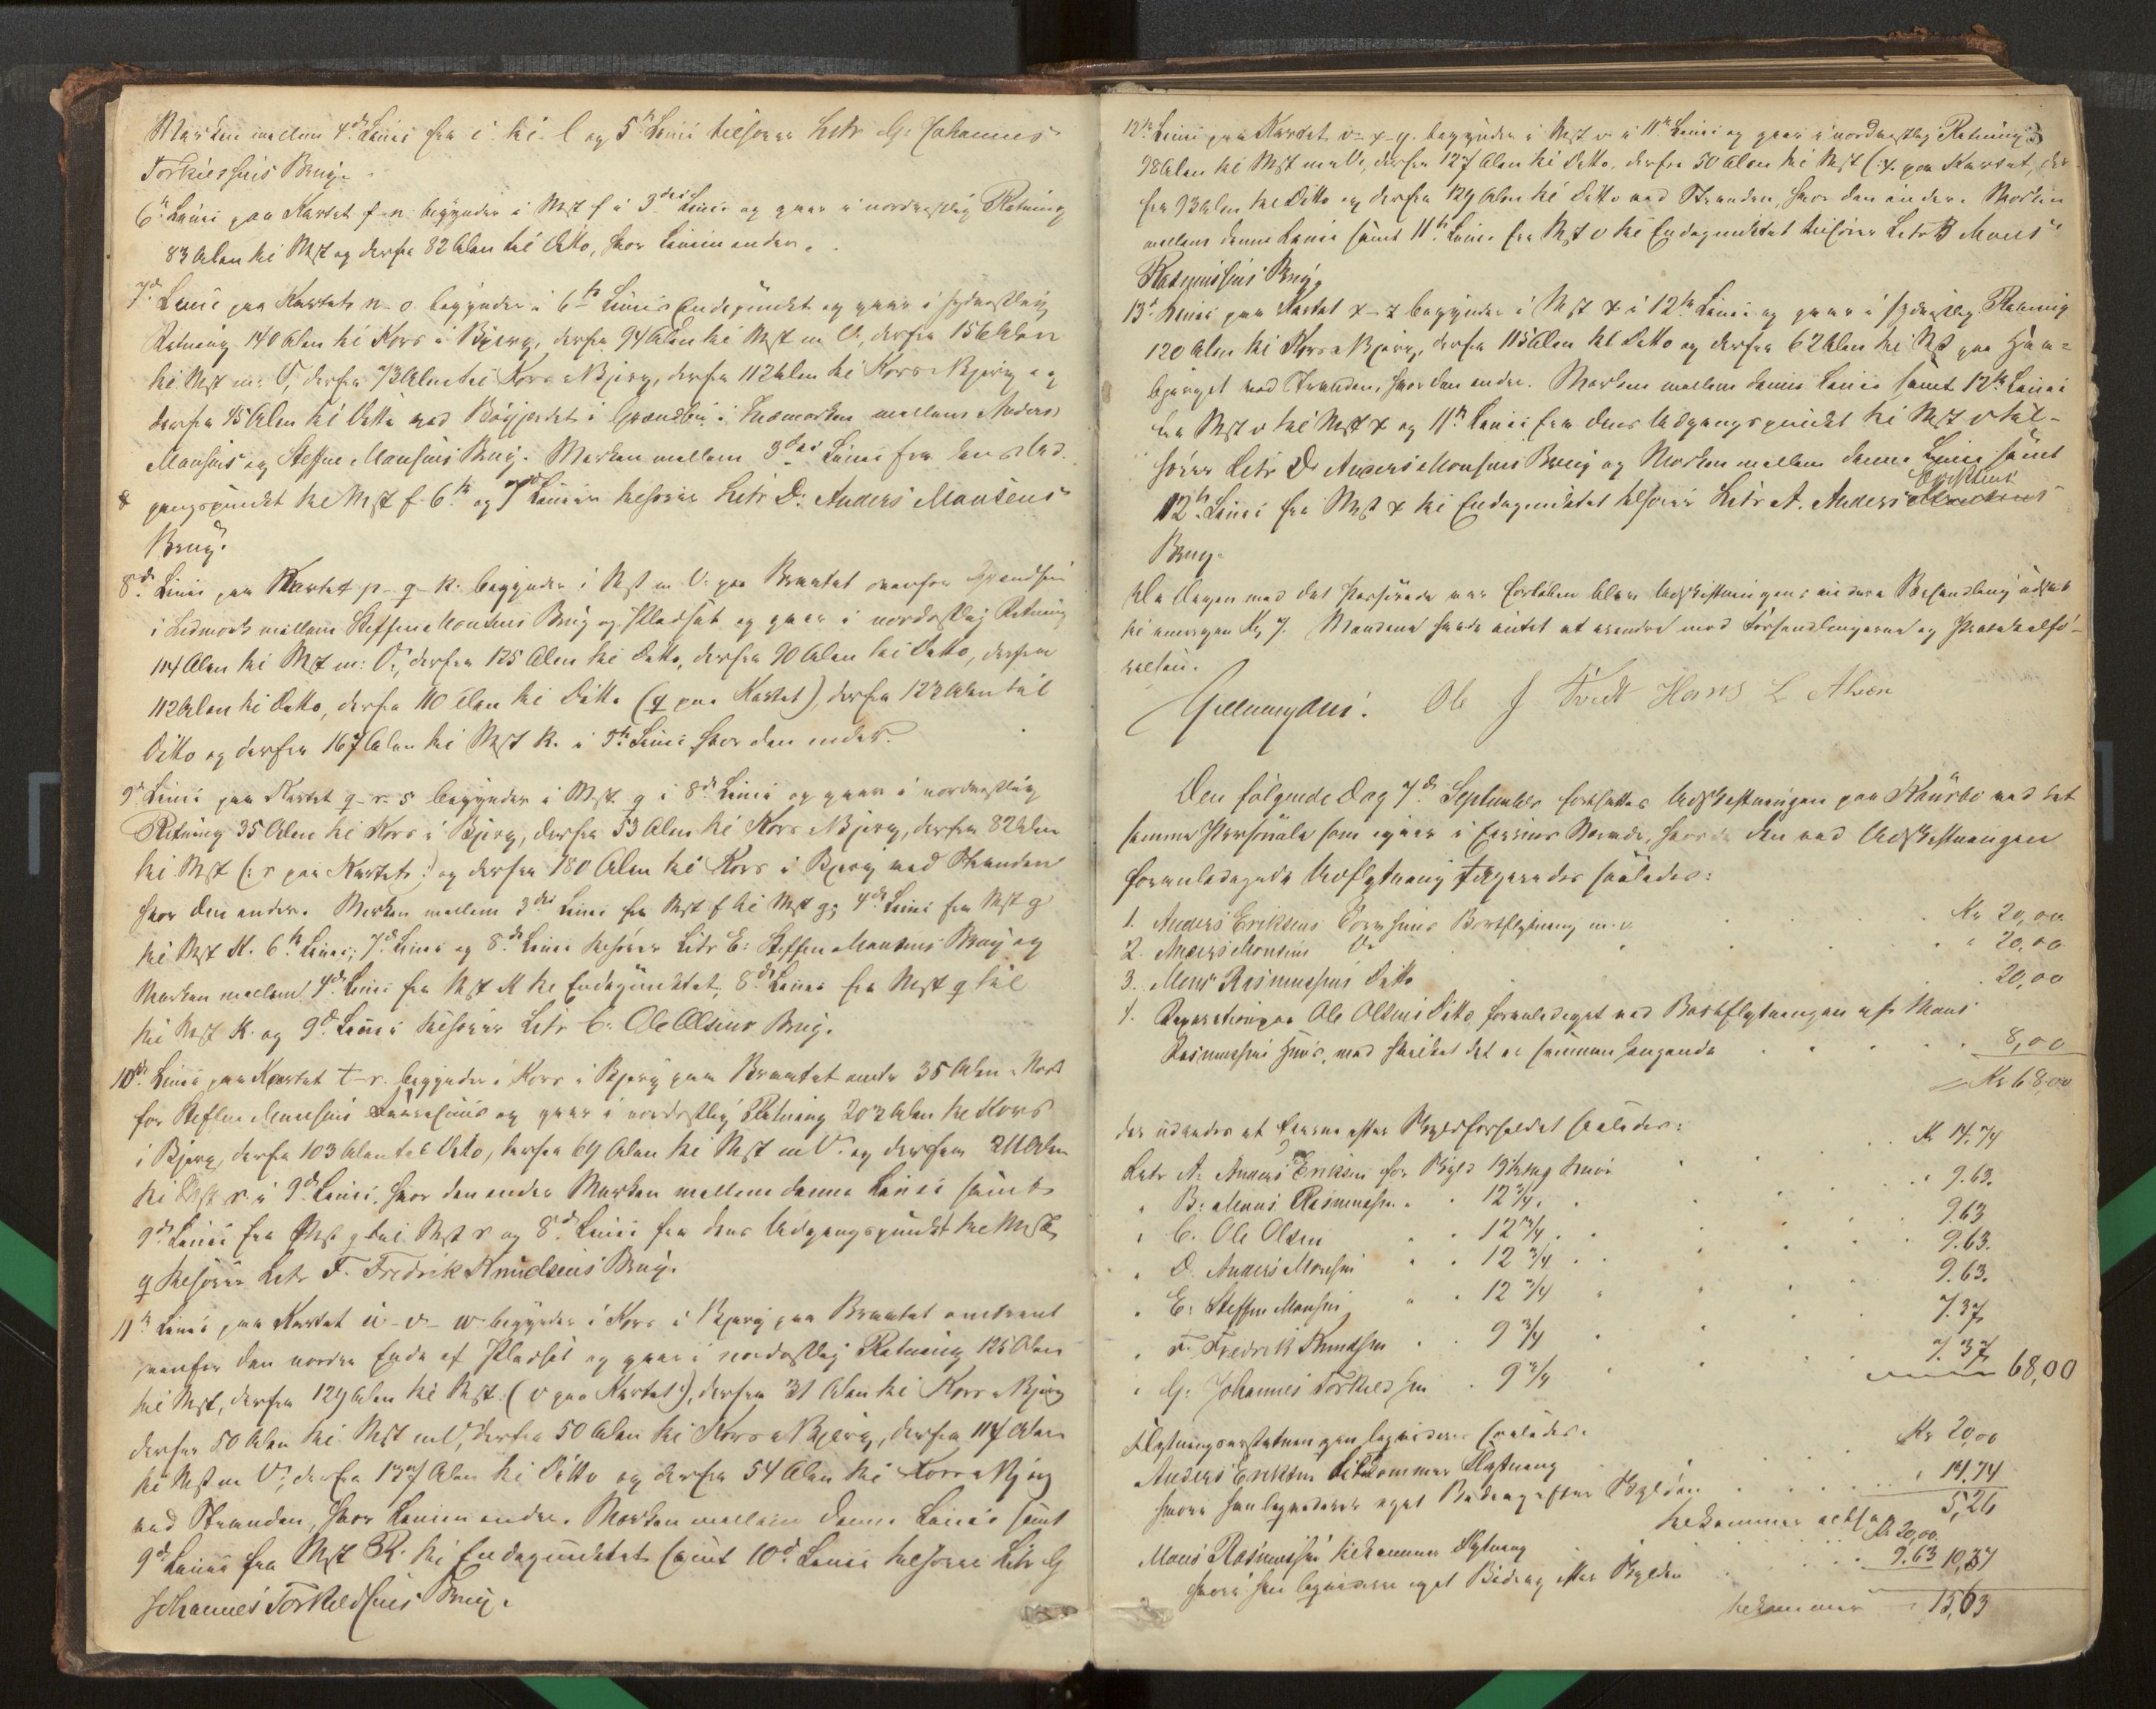 Marken mellem 4de Linie fra i til l og 5te Linie tilhører Litr G. Johannes
Torkildsens Brug.
6te Linie paa Kartet f-n begynder i Mst f i 3die Linie og gaar i nordvestlig Retning
83 Alen til Mst og derfra 82 Alen til Ditto, hvor Linien ender.
7de Linie paa Kartet n-o begynder i 6te Linies Endepunkt og gaar i sydvestlig
Retning 140 Alen til Kors i Bjerg, derfra 94 Alen til Mst m V., derfra 156 Alen
til Mst m: V, derfra 73 Alen til Kors i Bjerg, derfra 112 Alen til Kors i Bjerg og
derfra 45 Alen til Ditto ved Bøgjerdet i Indmarken mellem Anders
Monsens og Steffen Monsens Brug. Marken mellem 3die Linie fra dens Ud-
gangspunkt til Mst f. 6te og 7de Linier tilhører Litr D: Anders Monsens
Brug.
8de Linie paa Kartet p-q-k. begynder i Mst m V. paa Brautet ovenfor
i Ledmark mellem Steffen Monsens Brug og Pladset og gaar i nordostlig Retning
114 Alen til Mst m: V., derfra 125 Alen til Ditto, derfra 90 Alen til Ditto, derfra
112 Alen til Ditto, derfra 110 Alen til Ditto (q paa Kartet), derfra 123 Alen til
Ditto og derfra 167 Alen til Mst k. i 5te Linie hvor den ender.
9de Linie paa Kartet q-r-s begynder i Mst q i 8de Linie og gaar i nordvestlig
Retning 35 Alen til Kors i Bjerg, derfra 53 Alen til Kors i Bjerg, derfra 82 Alen
til Mst (: r paa Kartet :) og derfra 180 Alen til Kors i Bjerg ved Stranden
hvor den ender. Marken mellem 3die Linie fra Mst f til Mst g; 4de Linie fra Mst g
til Mst K. 6te Linie; 7de Linie og 8de Linie tilhører Litr E: Steffen Monsens Brug og
Marken mellem 4de Linie fra Mst K til Endepunktet, 8de Linie fra Mst q til
til Mst K. og 9de Linie tilhører Litr C. Ole Olsens Brug.
10de Linie paa Kartet t-r. begynder i Kors i Bjerg paa Brautet omtr 35 Alen Nord
for Steffen Monsens og gaar i nordostlig Retning 202 Alen til Kors
i Bjerg, derfra 103 Alen til Ditto, derfra 69 Alen til Mst m V. og derfra 211 Alen
til Mst r. i 9de Linie, hvor den ender Marken mellem denne Linie samt
9de Linie fra Mst q til Mst r og 8de Linie fra dens Udgangspunkt til Mst
q tilhører Litr F. Fredrik Knudsens Brug.
11te Linie paa Kartet u-v-w begynder i Kors i Bjerg paa Brautet omtrent
ovenfor den nordre Ende af Pladset og gaar i nordostlig Retning 125 Alen
til Mst, derfra 129 Alen til Mst (v paa Kartet), derfra 31 Alen til Kors i Bjerg
derfra 50 Alen til Mst m V, derfra 50 Alen til Kors i Bjerg, derfra 117 Alen
til Mst m V., derfra 137 Alen til Ditto og derfra 54 Alen til Kors i Bjerg
ved Stranden, hvor Linien ender. Marken mellem denne Linie samt
9de Linie fra Mst R. til Endepunktet samt 10de Linie tilhører Litr G
Johannes Torkildsens Brug.
3
12te Linie paa Kartet v-x-y. begynder i Mst v i 11te Linie og gaar i nordvestlig Retning
98 Alen til Mst m V., derfra 127 Alen til Ditto, derfra 50 Alen til Mst (: x paa Kartet, der-
fra 93 Alen til Ditto og derfra 129 Alen til Ditto ved Stranden, hvor den ender. Marken
mellem denne Linie samt 11te Linie fra Mst v til Endepunktet tilhører Litr B Mons
Rasmussens Brug.
13de Linie paa Kartet x-z begynder i Mst x i 12te Linie og gaar i sydvestlig Retning
120 Alen til Kors i Bjerg, derfra 115 Alen til Ditto og derfra 62 Alen til Mst paa
bjerget ved Stranden, hvor den ender. Marken mellem denne Linie samt 12te Linie
fra Mst v til Mst x og 11te Linie fra dens Udgangspunkt til Mst v til-
hører Litr D Anders Monsens Brug og Marken mellem denne Linie samt
12te Linie fra Mst x til Endepunktet tilhører Litr A. Anders Eriksens
Brug.
Da Dagen med det Passerede var forløben blev Udskiftningens videre Behandling udsat
til imorgen Kl 7. Mændene havde intet at erindre mod Forhandlingerne og Protokolfø-
relsen.
Ole J Tvedt Hans L Alvær
Den følgende Dag 7de September fortsattes Udskiftningen paa Kaurbø med det
samme Personale som igaar i Eiernes Nærvær, hvorda den ved Udskiftningen
foranledigede Udflytning reguleredes saaledes:
1. Anders Eriksens Vaaninghus Bortflytning m. v. Kr 20,00
2. Anders Monsens Do " 20,00
3. Mons Rasmussens Ditto 20,00
4. Reparation paa Ole Olsens Ditto foranlediget ved Bortflytningen af Mons
Rasmussens Huus, med hvilket det er sammenhængende 8,00
Kr 68,00
der udredes af Eierne efter Skyldforholdet saaledes:
Litr A. Anders Eriksen for Skyld 19½ Kr 14.74
" B: Mons Rasmussen " 12¾ " 9.63.
" C. Ole Olsen " 12¾ 9.63
" D. Anders Monsen " 12¾ 9.63.
" E: Steffen Monsen " 12¾ 9.63.
" F. Fredrik Knudsen " 9¾ 7.37
" G: Johannes Torkildsen " 9¾ 7.37
68,00
Flytningserstatningen lignedes saaledes.
Anders Eriksen tilkommer Flytning Kr 20,00
hvori han lignederer eget Bidrag efter Skylden 14.74
tilkommer altsaa 5,26
Mons Rasmussen tilkommer Flytning Kr 20,00
hvori han lignederer eget Bidrag efter Skylden 9.63 10,37
tilkommer 15,63